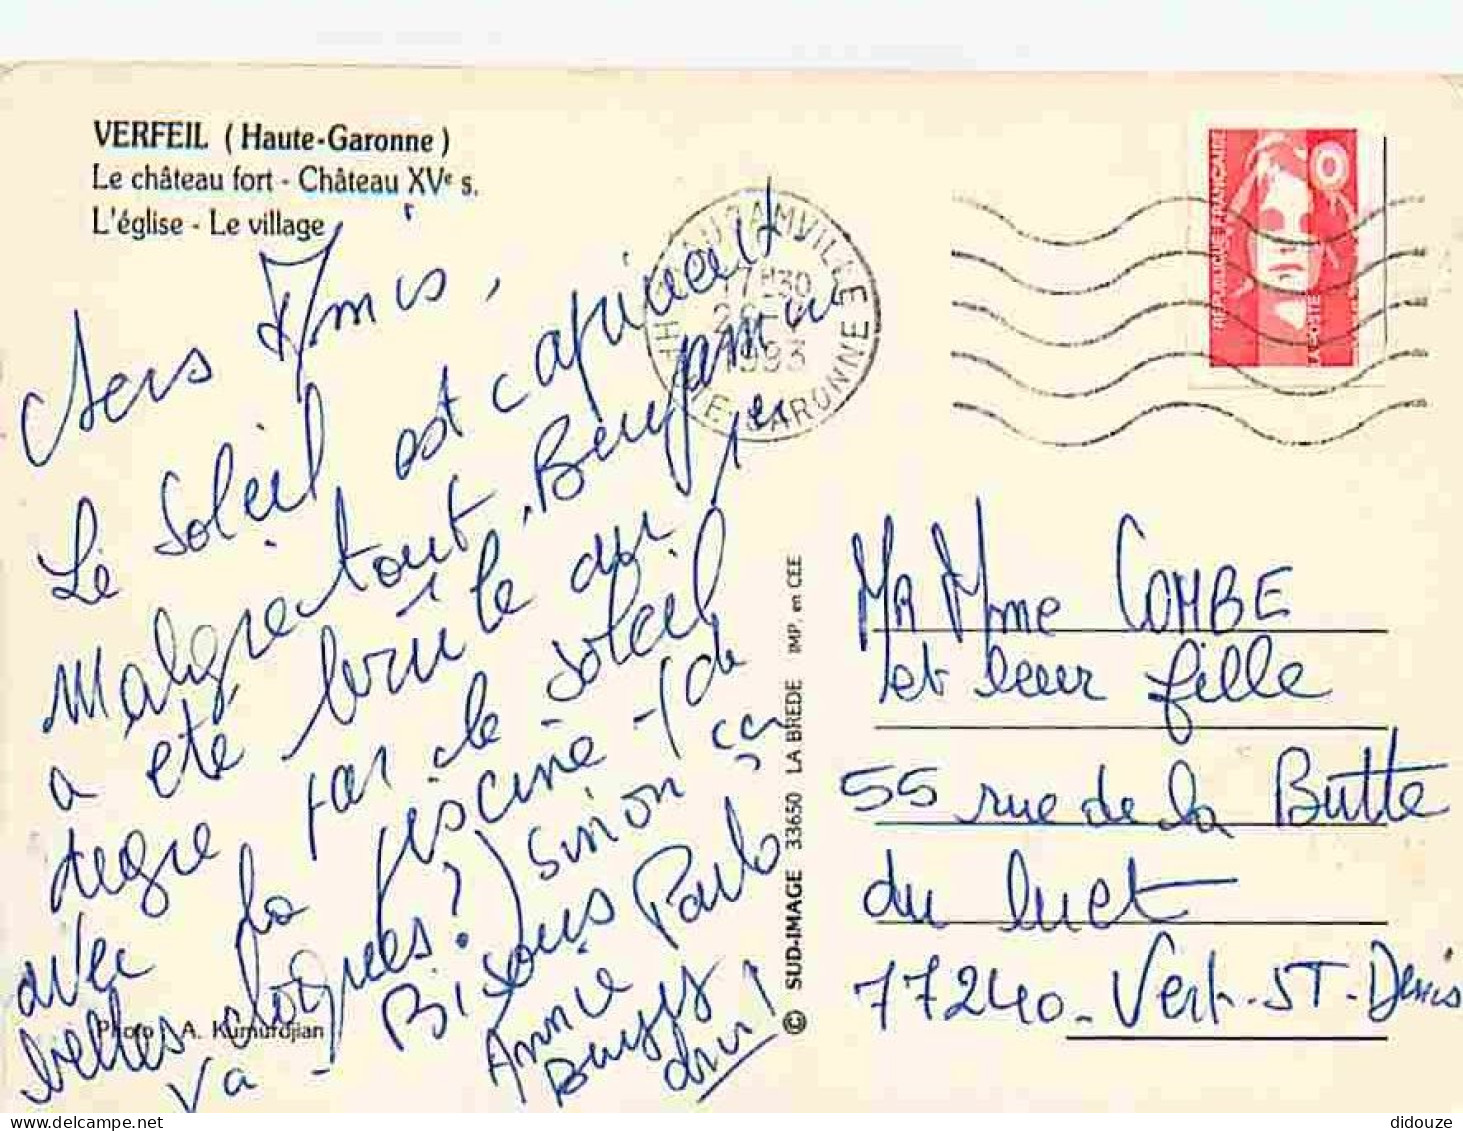 VERFEIL (Haute-Garonne)
Le château fort - Château XVe s.
L'église - Le village
chers Amis,
Le Soleil est capricieux
malgré tout, Benjamin
a été brulé au 1er
degré par le soleil
avec la piscine - (de
belles cloques?) sinon ça
va - Bisous Paulo
Annie
Photo : A. Kumurdjian
© SUD-IMAGE 33650 LA BREDE IMP. en CEE
17H30
1993
GARONNE
REPUBLIQUE FRANÇAISE
LA POSTE
MR Mme COMBE
et leur fille
55 rue de la Butte
du luet
77240 - Vert-ST-Denis
didouze